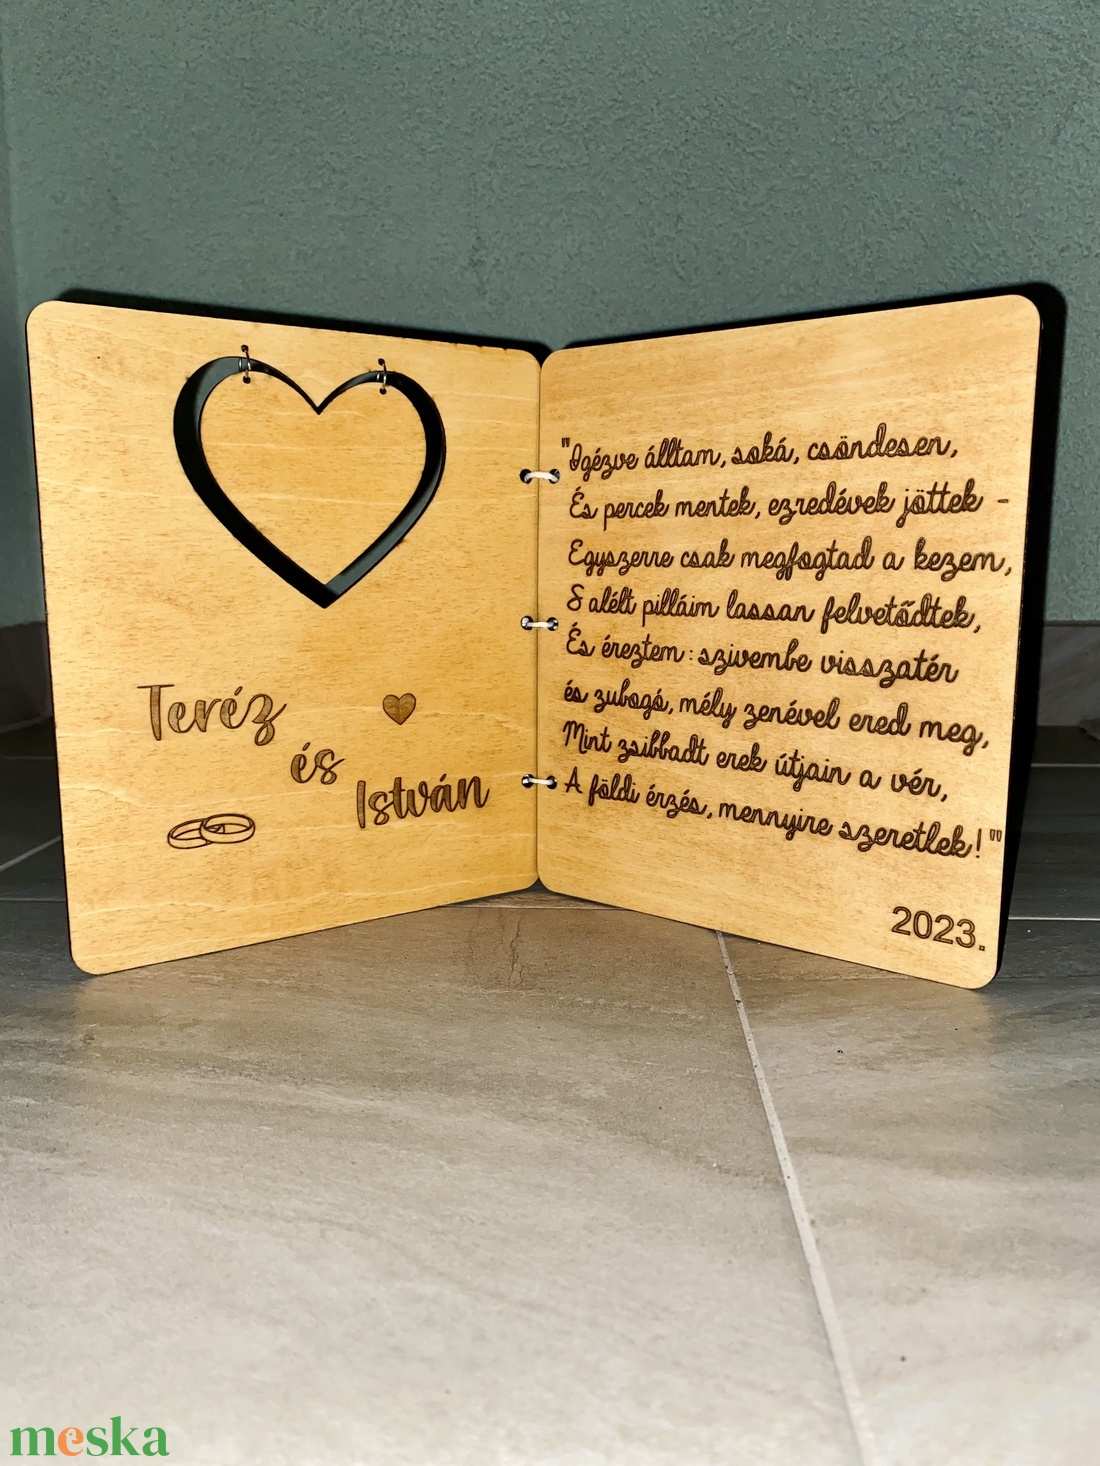 Teréz
és
István
"Igézve álltam, soká, csöndesen,
És percek mentek, ezredévek jöttek -
Egyszerre csak megfogtad a kezem,
S alélt pilláim lassan felvetődtek,
És éreztem: szivembe visszatér
és zubogó, mély zenével ered meg,
Mint zsibbadt erek útjain a vér,
A földi érzés, mennyire szeretlek!"
2023.
meska